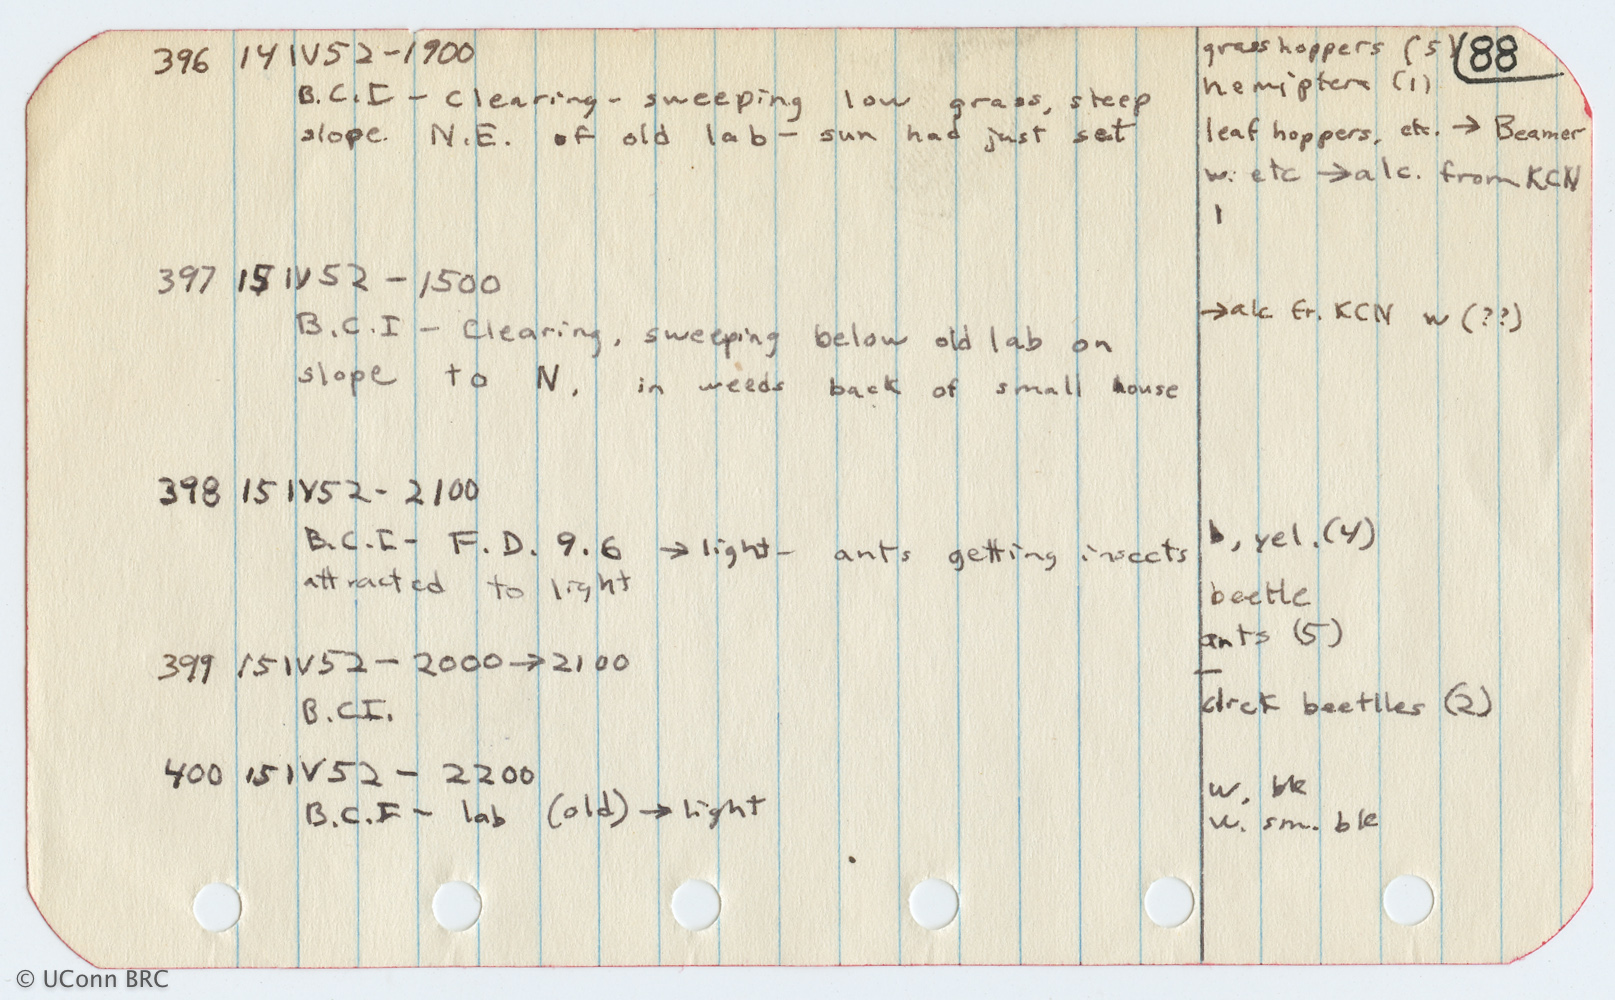 88
396 14 IV 52 - 1900
B.C.I - Clearing - sweeping low grass, steep
slope N.E. of old lab - sun had just set
grasshoppers (5)
hemiptera (1)
leaf hoppers, etc. → Beamer
w. etc → alc. from KCN
1
397 15 IV 52 - 1500
B.C.I - Clearing, sweeping below old lab on
slope to N, in weeds back of small house
→ alc fr. KCN w (??)
398 15 IV 52 - 2100
B.C.I - F.D. 9.6 → light - ants getting insects
attracted to light
b, yel. (4)
beetle
ants (5)
399 15 IV 52 - 2000 → 2100
B.C.I.
click beetlles (2)
400 15 IV 52 - 2200
B.C.I - lab (old) → light
w. blk
w. sm. blk
© UConn BRC